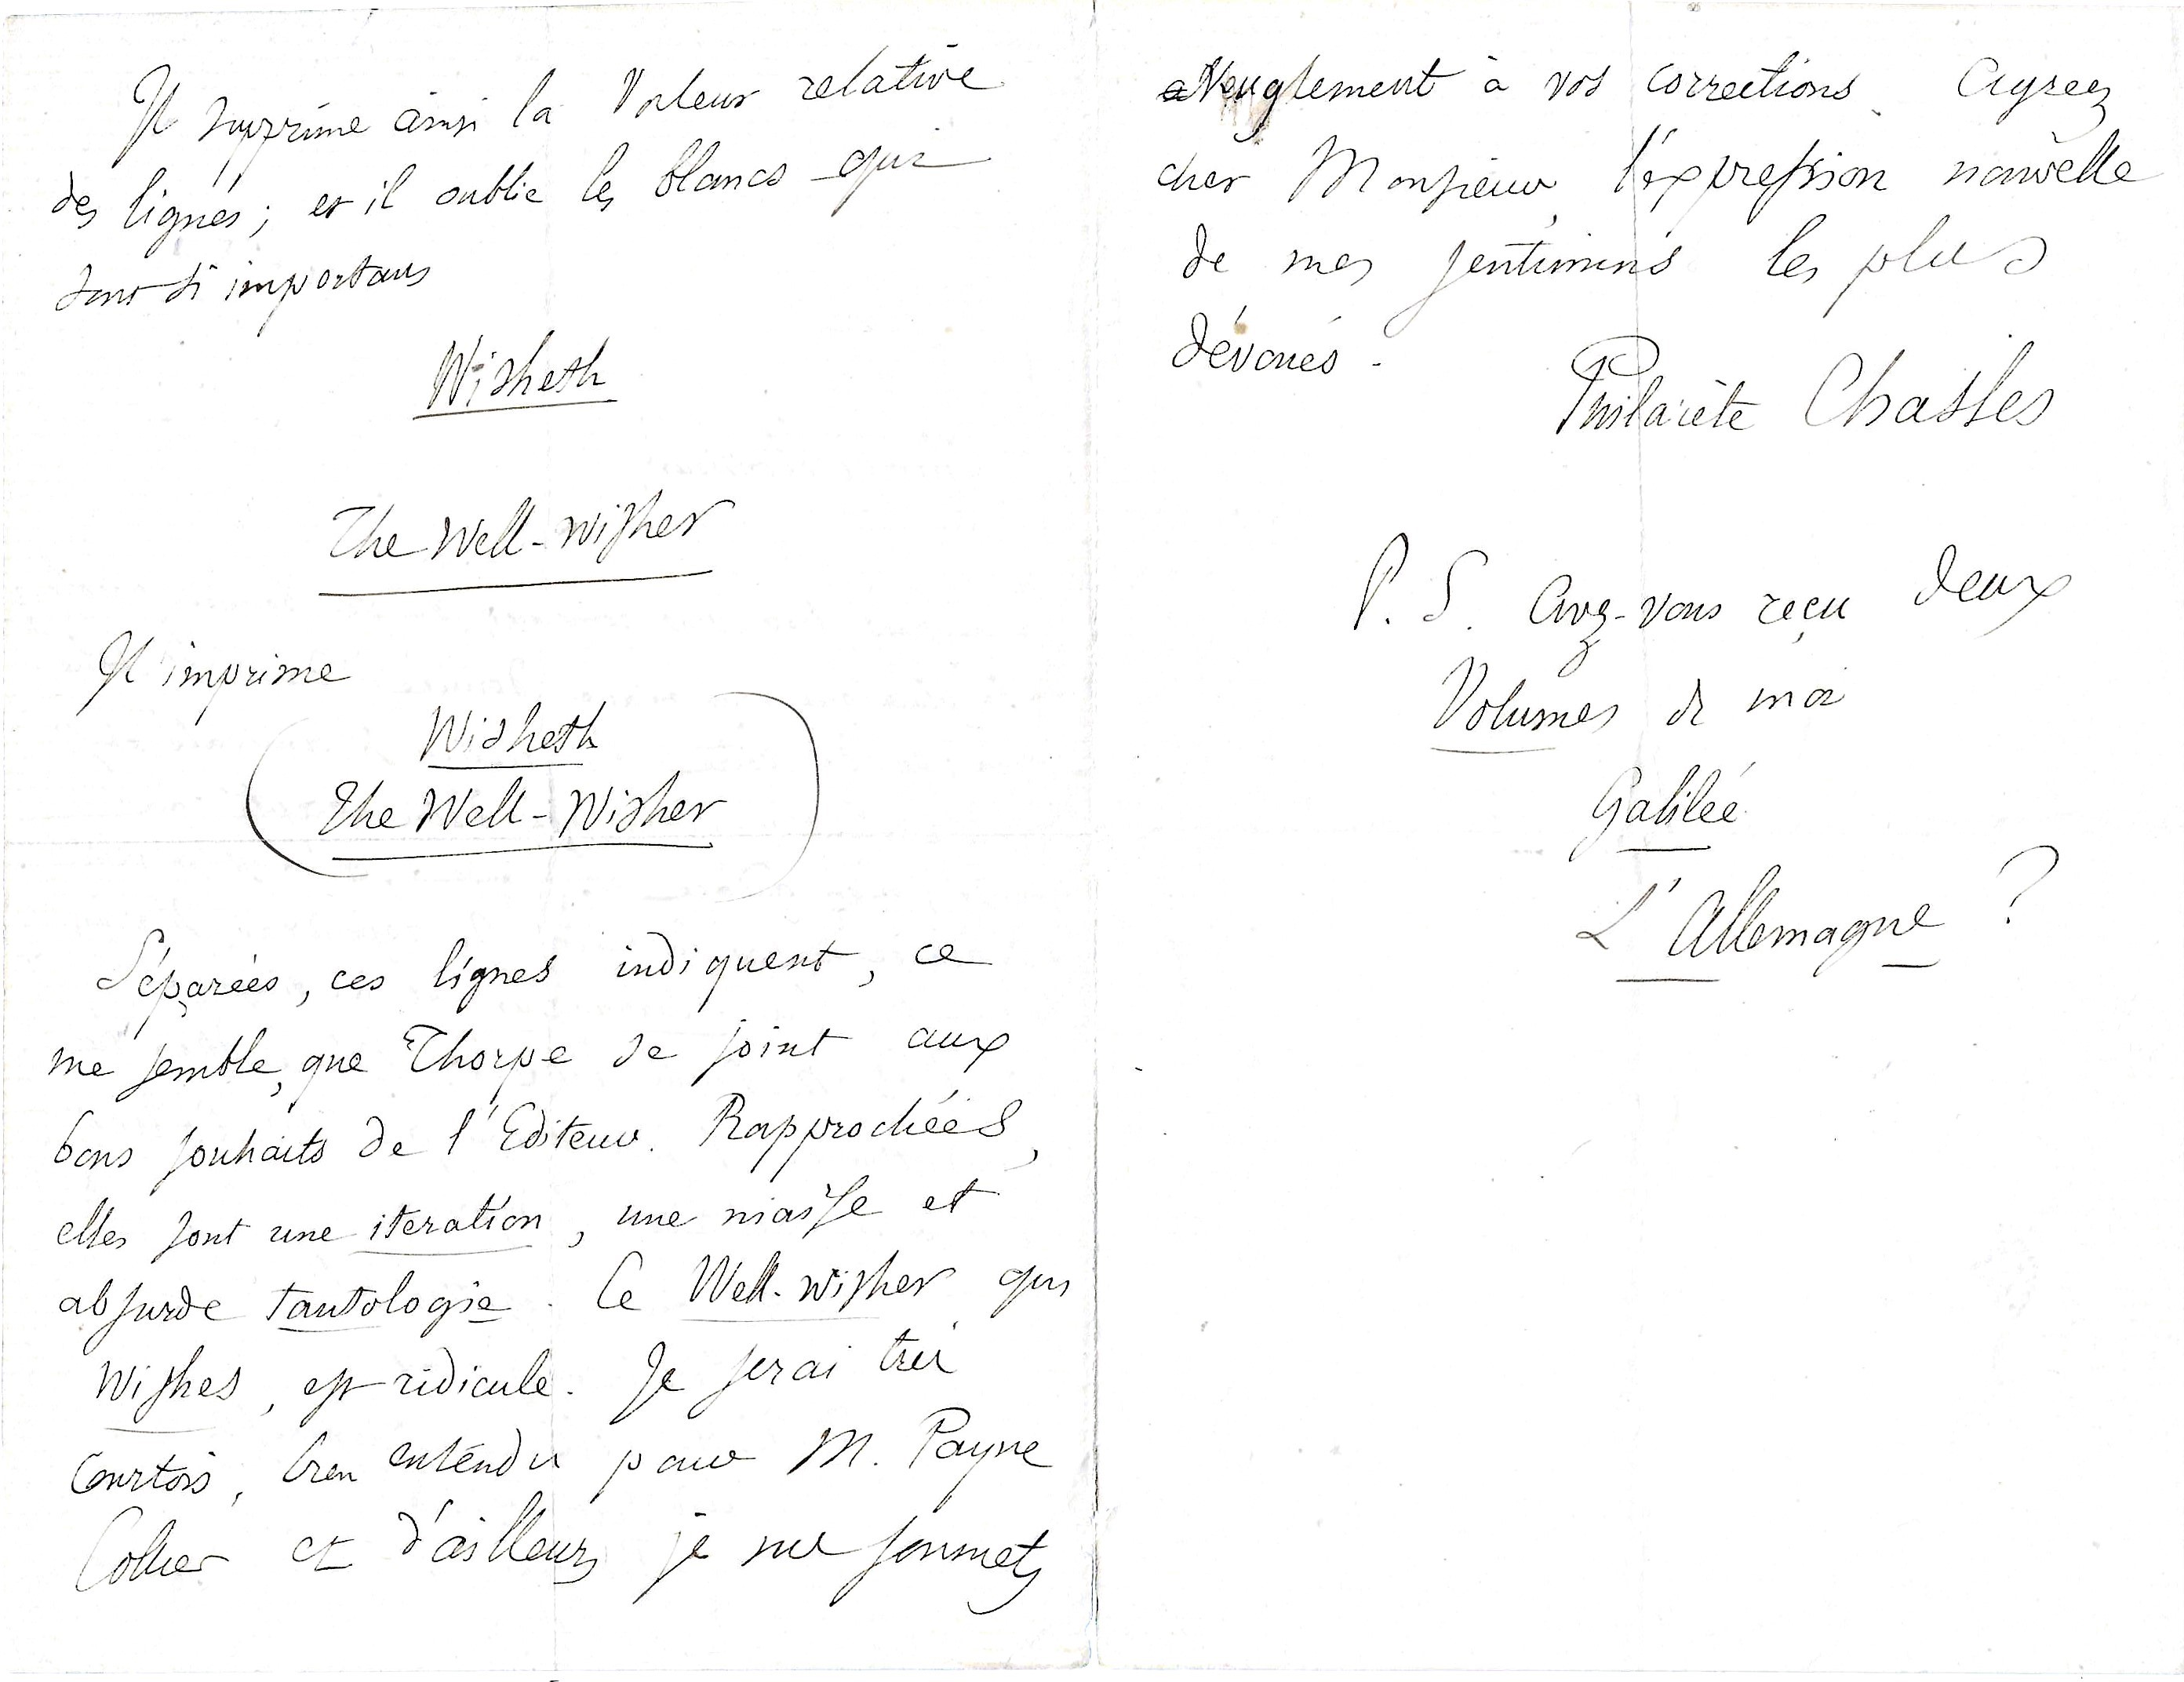 Il supprime ainsi la Valeur relative
des lignes; et il oublie les blancs qui
sont si importans
Wisheth
The Well-wisher
Il imprime
Wisheth
The Well-Wisher
Séparées, ces lignes indiquent, ce
me semble, que Thorpe se joint aux
bons souhaits de l'Editeur. Rapprochées,
elles sont une iteration, une niaise et
absurde tautologie. Ce Well-wisher qui
wishes, est ridicule. Je serai très
Courtois, bien entendu pour M. Payne
Collier et d'ailleurs je me soumets
aveuglement à vos corrections. Agreez
cher Monsieur, l'expression nouvelle
de mes sentimens les plus
dévoués.
Philarète Chasles
P. S. Avez-vous reçu deux
Volumes de moi
Galilée
L'Allemagne ?